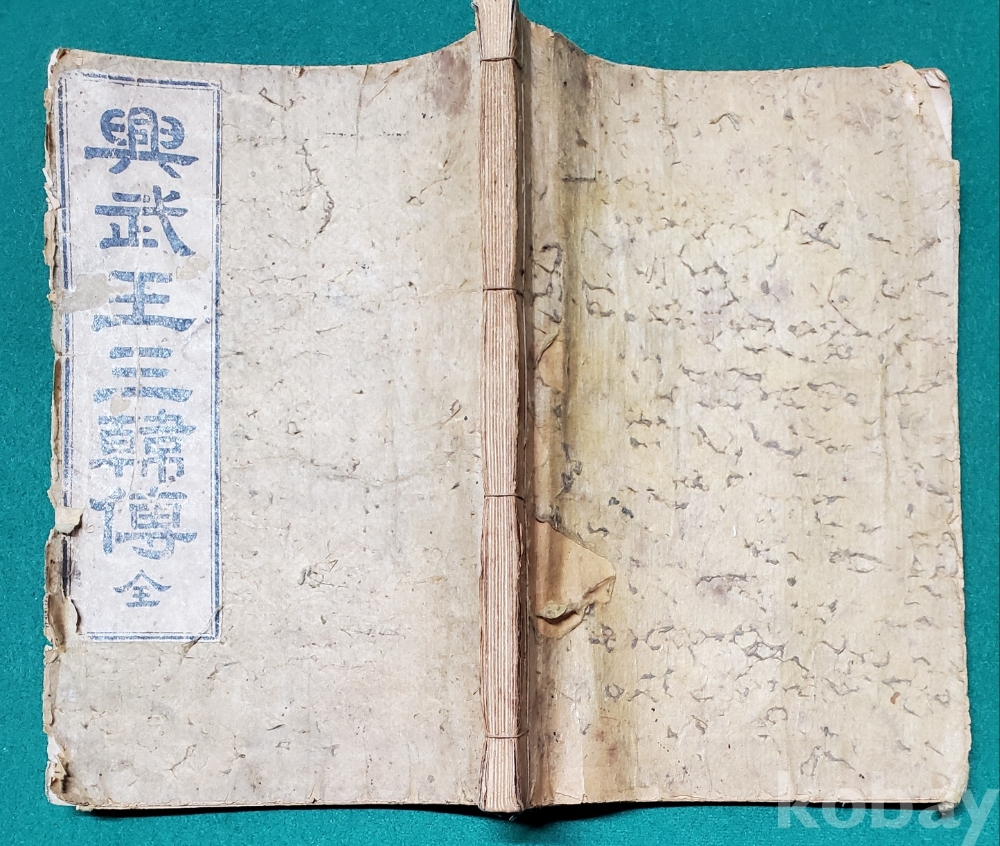 興武王三韓傳全
kobay